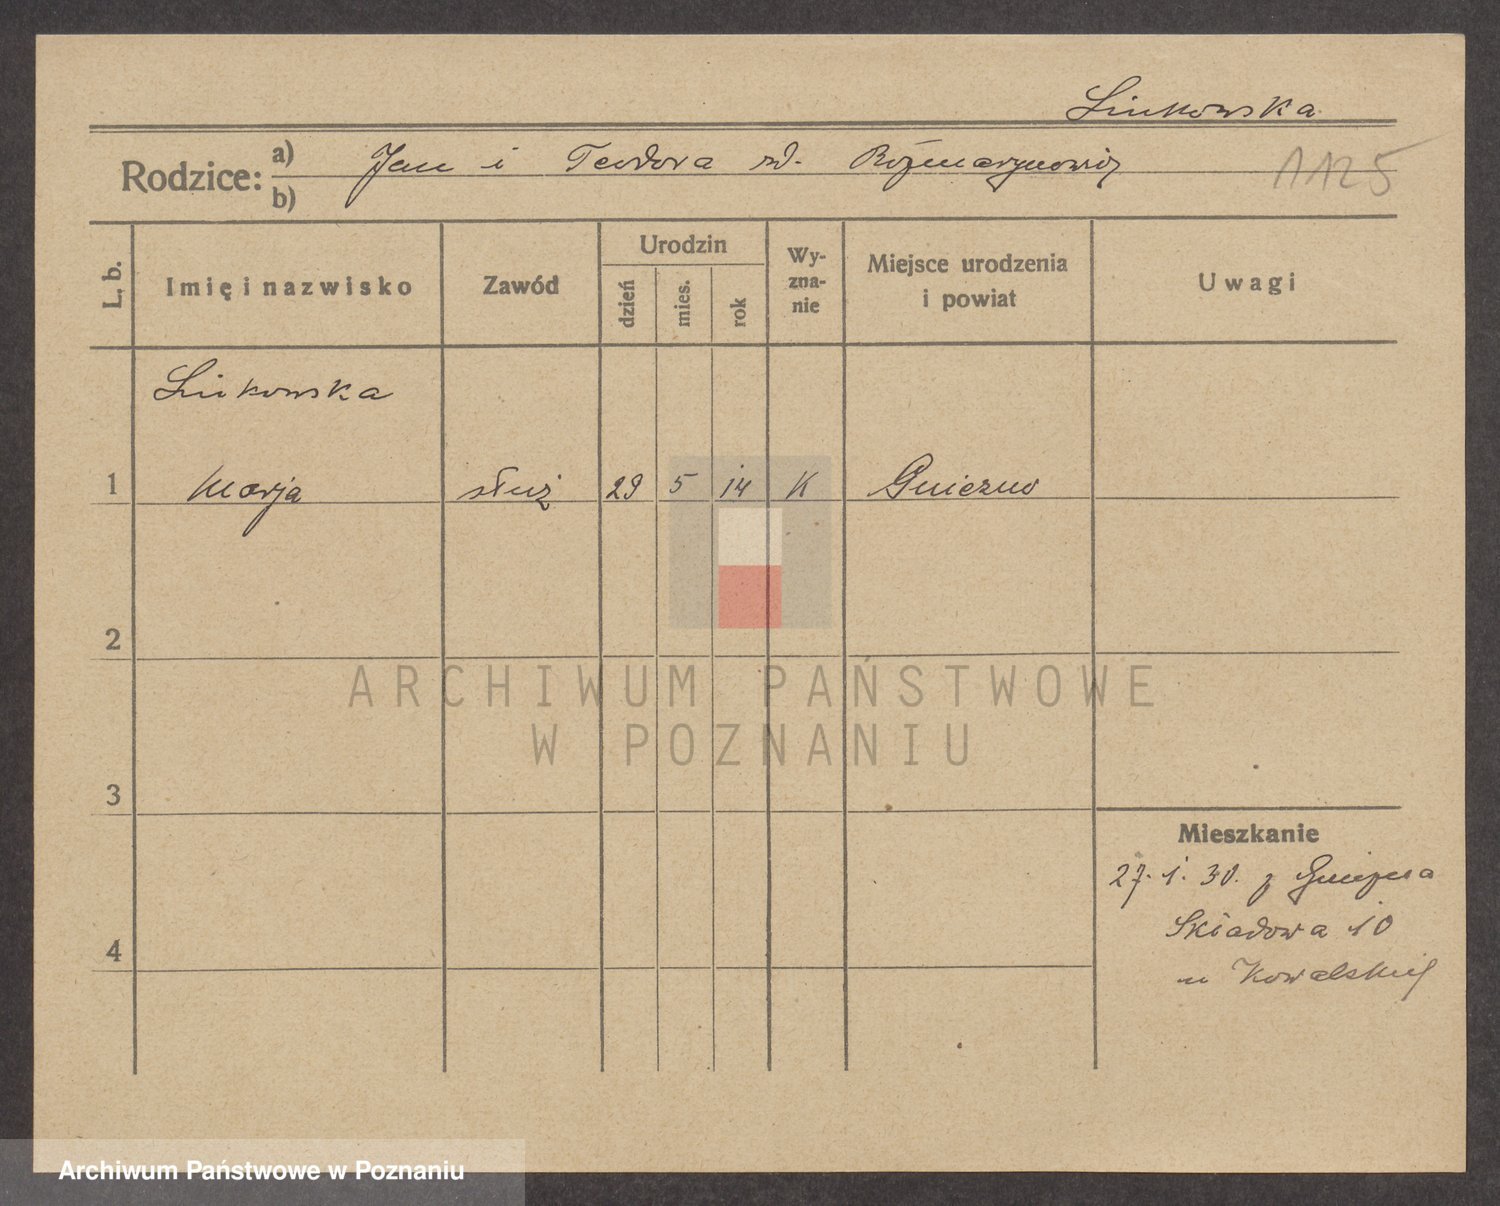 Linkowska
Rodzice: a) Jan i Teodora zd. Rożmarynowicz
b)
1125
L. b.
Imię i nazwisko
Zawód
Urodzin
dzień
mies.
rok
Wy-
zna-
nie
Miejsce urodzenia
i powiat
Uwagi
Linkowska
1 Marja służ 29 5 14 K Gniezno
2
ARCHIWUM PAŃSTWOWE
W POZNANIU
3
Mieszkanie
27. 1. 30. z Gniezna
Składowa 10
u Kowalskiej
4
Archiwum Państwowe w Poznaniu